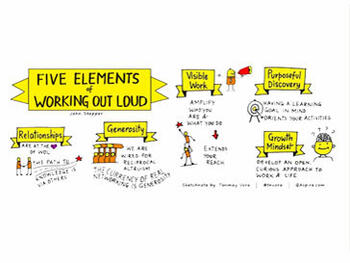 FIVE ELEMENTS
of
WORKING OUT LOUD
John Stepper
Relationships
ARE AT THE
OF WOL
THE PATH TO
KNOWLEDGE IS
VIA OTHERS
Generosity
WE ARE
WIRED FOR
RECIPROCAL
ALTRUISM
THE CURRENCY OF REAL
NETWORKING IS GENEROSITY
Visible
Work
AMPLIFY
WHO YOU
ARE &
WHAT YOU
DO
EXTENDS
YOUR
REACH
Purposeful
Discovery
HAVING A LEARNING
GOAL IN MIND
ORIENTS YOUR ACTIVITIES
Growth
Mindset
DEVELOP AN OPEN,
CURIOUS APPROACH TO
WORK & LIFE
Sketchnote by Tanmay Vora